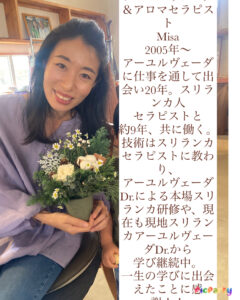 ＆アロマセラピス
ト
Misa
2005年～
アーユルヴェーダ
に仕事を通して出
会い20年。スリラ
ンカ人
セラピストと
約9年、共に働く。
技術はスリランカ
セラピストに教わ
り、
アーユルヴェーダ
Dr.による本場スリ
ランカ研修や、現
在も現地スリラン
カアーユルヴェー
ダDr.から
学び継続中。
一生の学びに出会
えたことに感